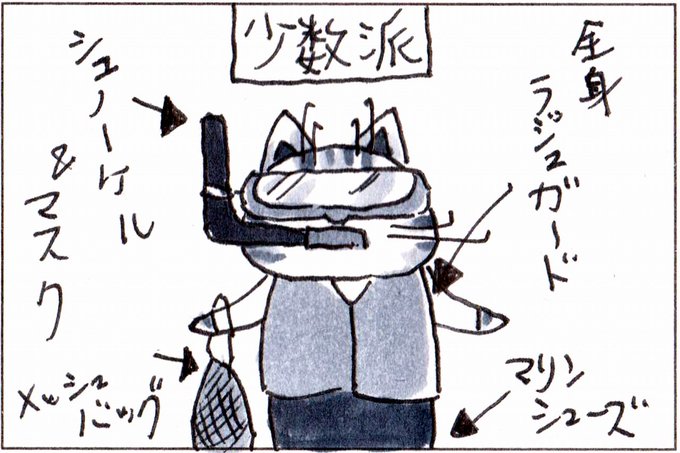 少数派
全身
ラジュガード
シュノーケル
&マスク
メッシュ
バッグ
マリン
シューズ